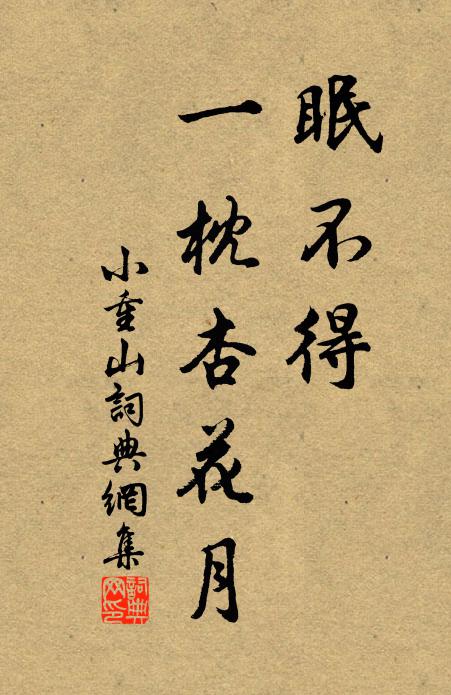 眠不得
一枕杏花月
小重山詞典網集
詞典网印